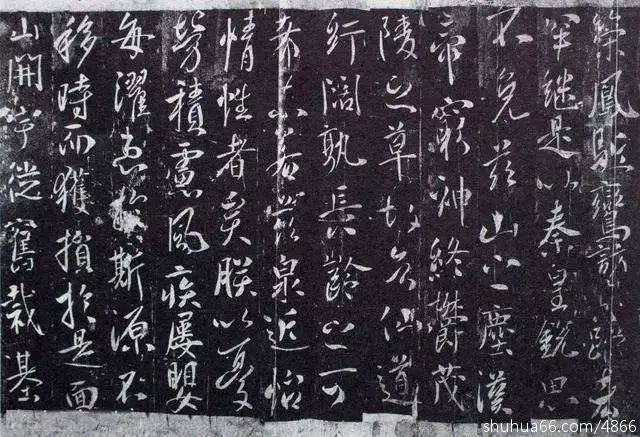 鳳駈鸞訪者
罕繼是以秦皇銳思
不免茲山之塵漢
帝窮神終鬱茂
陵之草故知仙道
紆闊孰長齡之可
希未若茲泉近怡
情性者矣朕以憂
勞積慮風疾屢嬰
每濯患於斯源不
移時而獲損於是面
山開宇從舊裁基
shuhua66.com/4866